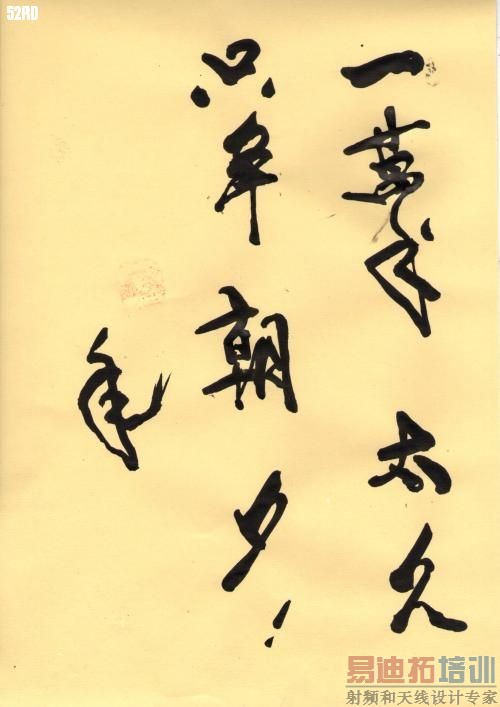 52RD
一萬年太久
只争朝夕！
易迪拓培训
射频和天线设计专家